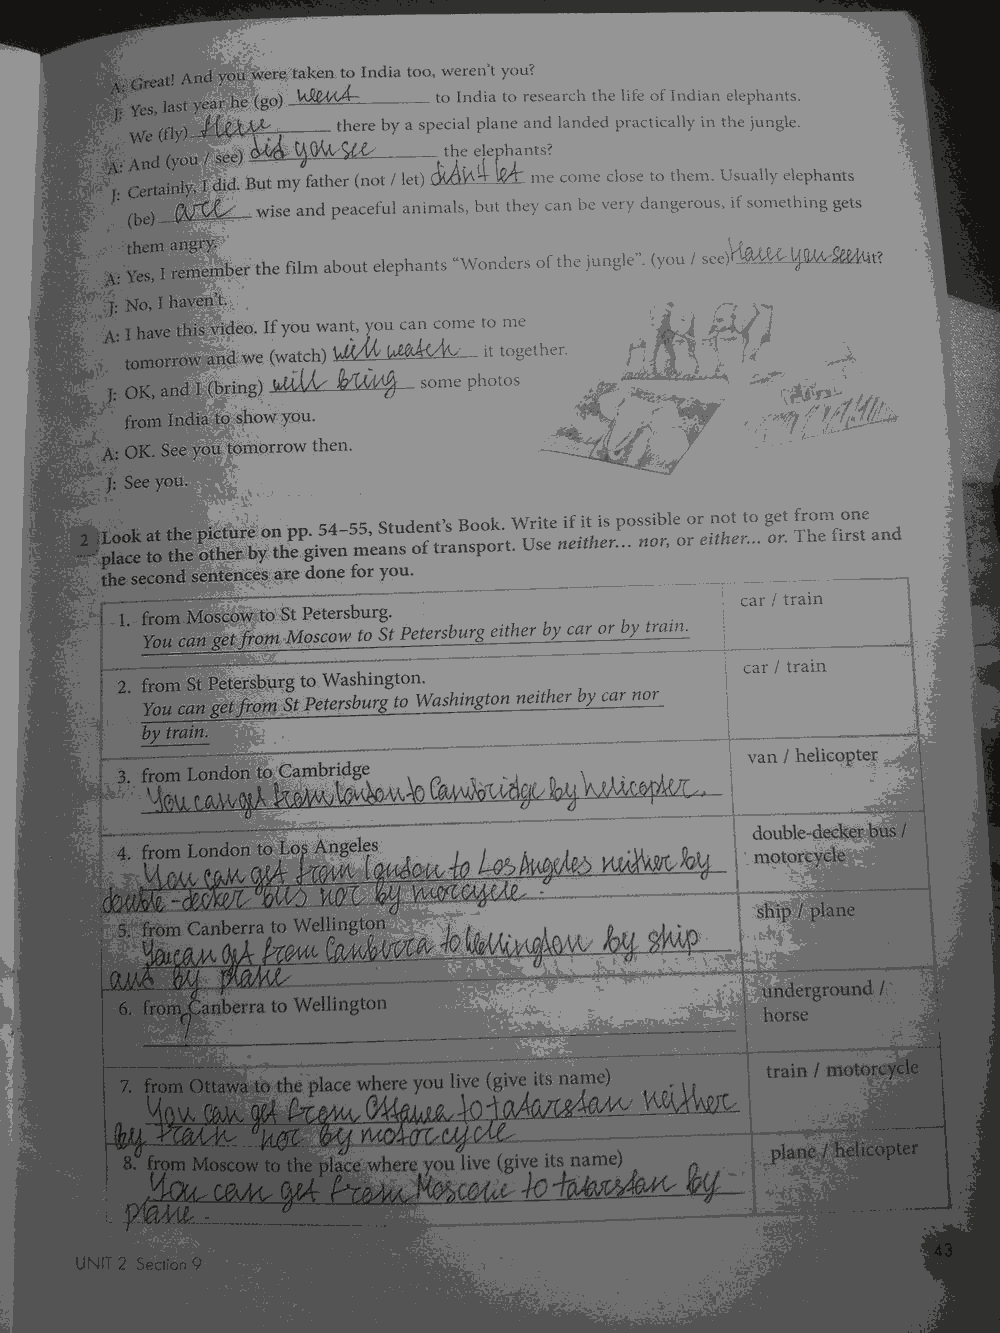 A: Great! And you were taken to India too, weren't you?
J: Yes, last year he (go) went to India to research the life of Indian elephants.
We (fly) flew there by a special plane and landed practically in the jungle.
A: And (you / see) did you see the elephants?
J: Certainly, I did. But my father (not / let) didn't let me come close to them. Usually elephants
(be) are wise and peaceful animals, but they can be very dangerous, if something gets
them angry.
A: Yes, I remember the film about elephants “Wonders of the jungle”. (you / see) Have you seen it?
J: No, I haven't.
A: I have this video. If you want, you can come to me
tomorrow and we (watch) will watch it together.
J: OK, and I (bring) will bring some photos
from India to show you.
A: OK. See you tomorrow then.
J: See you.
2 Look at the picture on pp. 54–55, Student's Book. Write if it is possible or not to get from one
place to the other by the given means of transport. Use neither... nor, or either... or. The first and
the second sentences are done for you.
1. from Moscow to St Petersburg. car / train
You can get from Moscow to St Petersburg either by car or by train.
2. from St Petersburg to Washington. car / train
You can get from St Petersburg to Washington neither by car nor
by train.
3. from London to Cambridge van / helicopter
You can get from London to Cambridge by helicopter.
4. from London to Los Angeles double-decker bus /
motorcycle
You can get from London to Los Angeles neither by
double-decker bus nor by morcycle.
5. from Canberra to Wellington ship / plane
You can get from Canberra to Wellington by ship
and by plane
6. from Canberra to Wellington underground /
horse
?
7. from Ottawa to the place where you live (give its name) train / motorcycle
You can get from Ottawa to tatarstan neither
by train nor by motorcycle
8. from Moscow to the place where you live (give its name) plane / helicopter
You can get from Moscow to tatarstan by
plane.
UNIT 2 Section 9
43